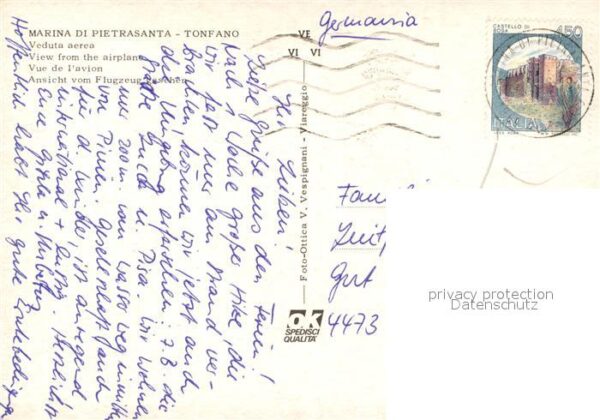 MARINA DI PIETRASANTA - TONFANO
Veduta aerea
View from the airplane
Vue de l'avion
Ansicht vom Flugzeug gesehen
Germania
VE
VI VI
CASTELLO DI
450
ITALIA
Foto-Ottica V. Vespignani - Viareggio
OK
SPEDISCI
QUALITÀ
Ihr Lieben!
Liebe Grüße aus den Ferien!
Nach 1 Woche große Hitze, die
wir fast nur am Strand ver-
brachten können wir jetzt auch
die Umgebung z.B. die
Städte Lucca u. Pisa. Wir wohnen
nur 200 m vom Wasser weg inmitten
von Pinien. Gesellschaft auch
für d. Kinder, ist anregend
international + lustig. Herzlichst
Eure
Hoffentlich habt Ihr gute Erntebedingungen
Gut
4473
privacy protection
Datenschutz